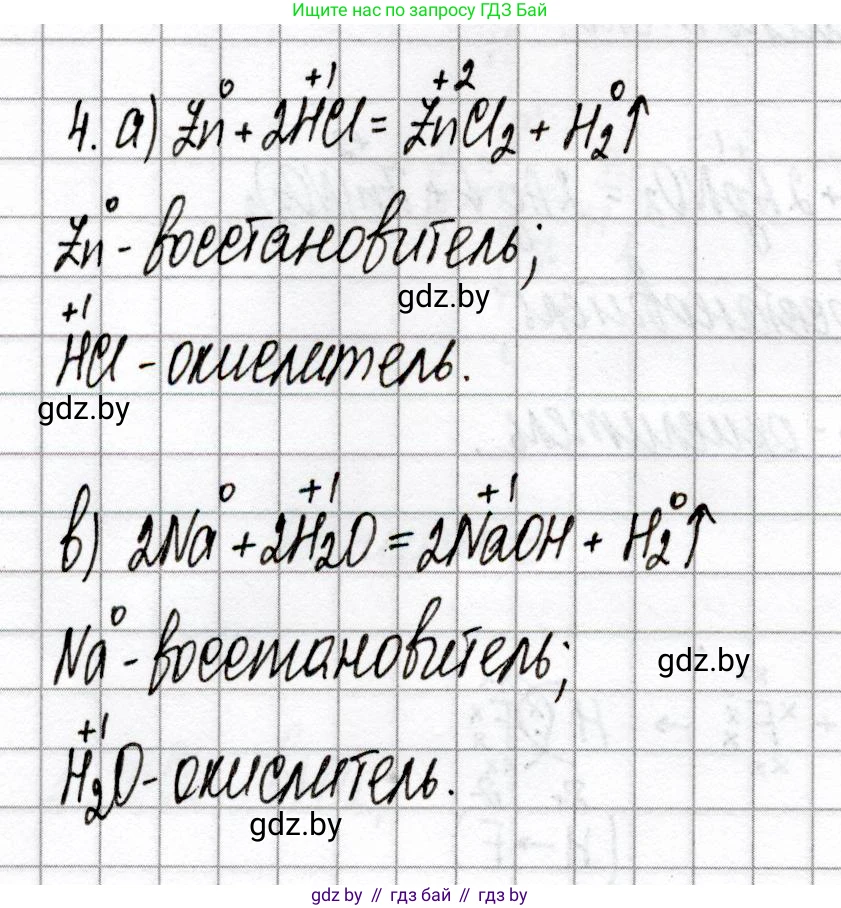 Ищите нас по запросу ГДЗ Бай
4. а) Zn⁰ + 2H⁺¹Cl = Zn⁺²Cl₂ + H₂⁰↑
Zn⁰ - восстановитель;
gdz.by
H⁺¹Cl - окислитель.
gdz.by
в) 2Na⁰ + 2H₂⁺¹O = 2Na⁺¹OH + H₂⁰↑
Na⁰ - восстановитель;
gdz.by
H₂⁺¹O - окислитель.
gdz.by
gdz by // гдз бай // gdz by